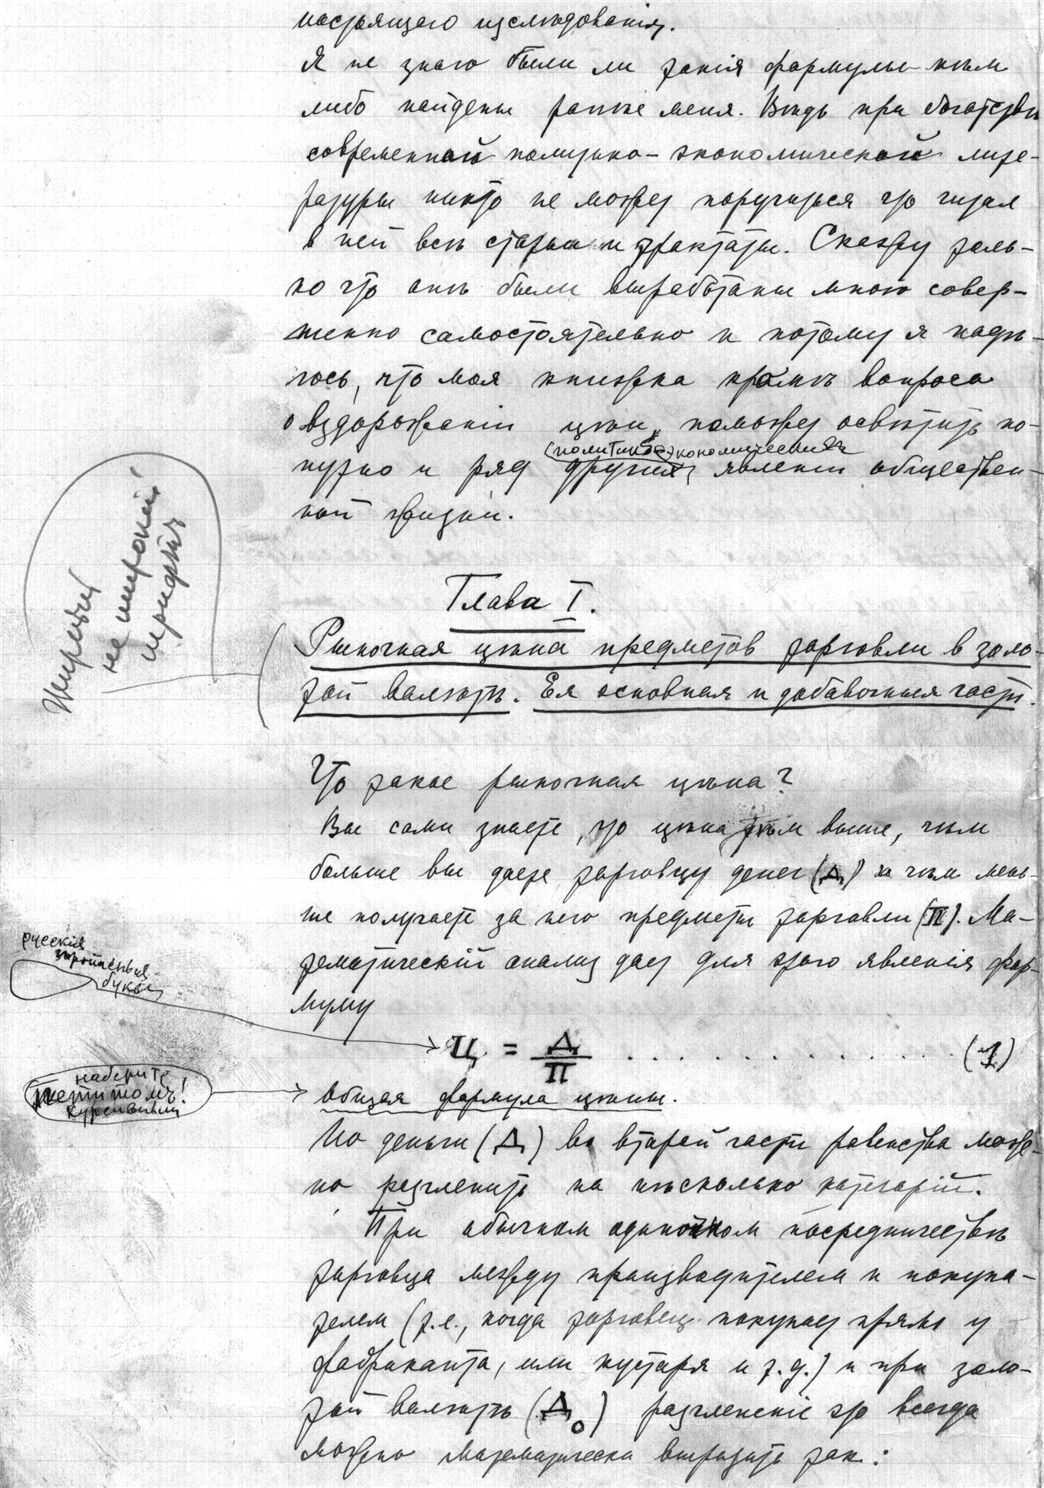 настоящаго изслѣдованія.
Я не знаю были ли такія формулы кѣм
либо найдены раньше меня. Вѣдь при богатствѣ
современной политико-экономической лите-
ратуры никто не может поручиться что читал
в ней всѣ статьи и трактаты. Скажу толь-
ко что онѣ были выработаны мною совер-
шенно самостоятельно и потому я надѣ-
юсь, что моя книжка кромѣ вопроса
о вздорожаніи цѣн, поможет освѣтить по-
(политико-экономических)
путно и ряд других явленій обществен-
ной жизни.
Жирный
не широкій
шрифтъ
Глава I.
Рыночная цѣна предметов торговли в золо-
той валютѣ. Ея основная и добавочныя части.
Что такое рыночная цѣна?
Вы сами знаете, что цѣна тѣм выше, чѣм
больше вы даете торговцу денег (Д) и чѣм мень-
ше получаете за него предметы торговли (П). Ма-
тематическій анализ дает для этого явленія фор-
мулу
русскія
буквы
Ц = Д/П . . . . . . . . . . . . (1)
наберите
петитомъ!
курсивный
общая формула цѣны.
Но деньги (Д) во второй части равенства мож-
но расчленить на нѣсколько категорій.
При обычном одиночном посредничествѣ
торговца между производителем и покупа-
телем (т.е., когда торговец покупает прямо у
фабриканта, или кустаря и т.д.) и при золо-
той валютѣ (Д₀) расчлененіе это всегда
можно математически выразить так: